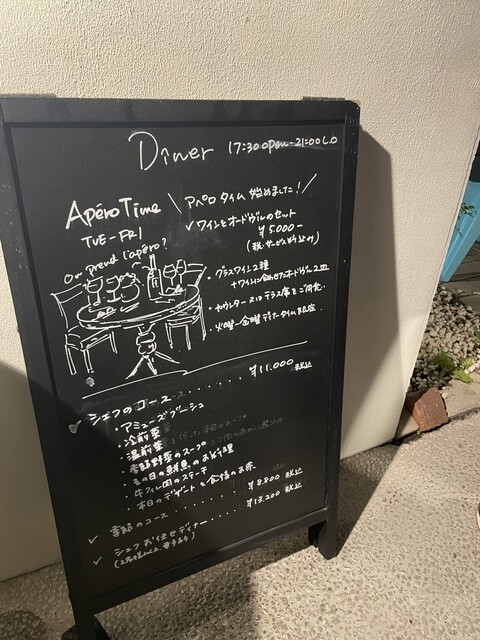 Dîner 17:30 open-21:00 L.O
Apéro Time
TUE-FRI
On prend l'apéro?
\ アペロタイム 始めました! /
✓ワインとオードヴルのセット
¥5.000-
(税・サービス料込み)
・グラスワイン2種
+ワインに合わせたオードヴル2皿
・カウンター又はテラス席をご用意
・火曜〜金曜 ディナータイム
✓ シェフのコース...... ¥11.000 税込
・アミューズブーシュ
・冷前菜
・温前菜
・季節野菜のスープ
・その日の鮮魚のお料理
・牛フィレ肉のステーキ
・本日のデザートと食後のお茶
✓ 季節のコース ...... ¥8.800 税込
✓ シェフお任せディナー...... ¥13.200 税込